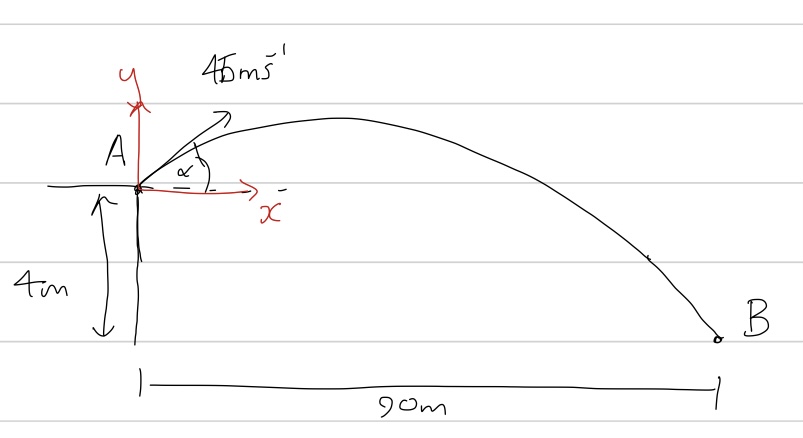 y
45ms⁻¹
A
α
x
4m
B
90m